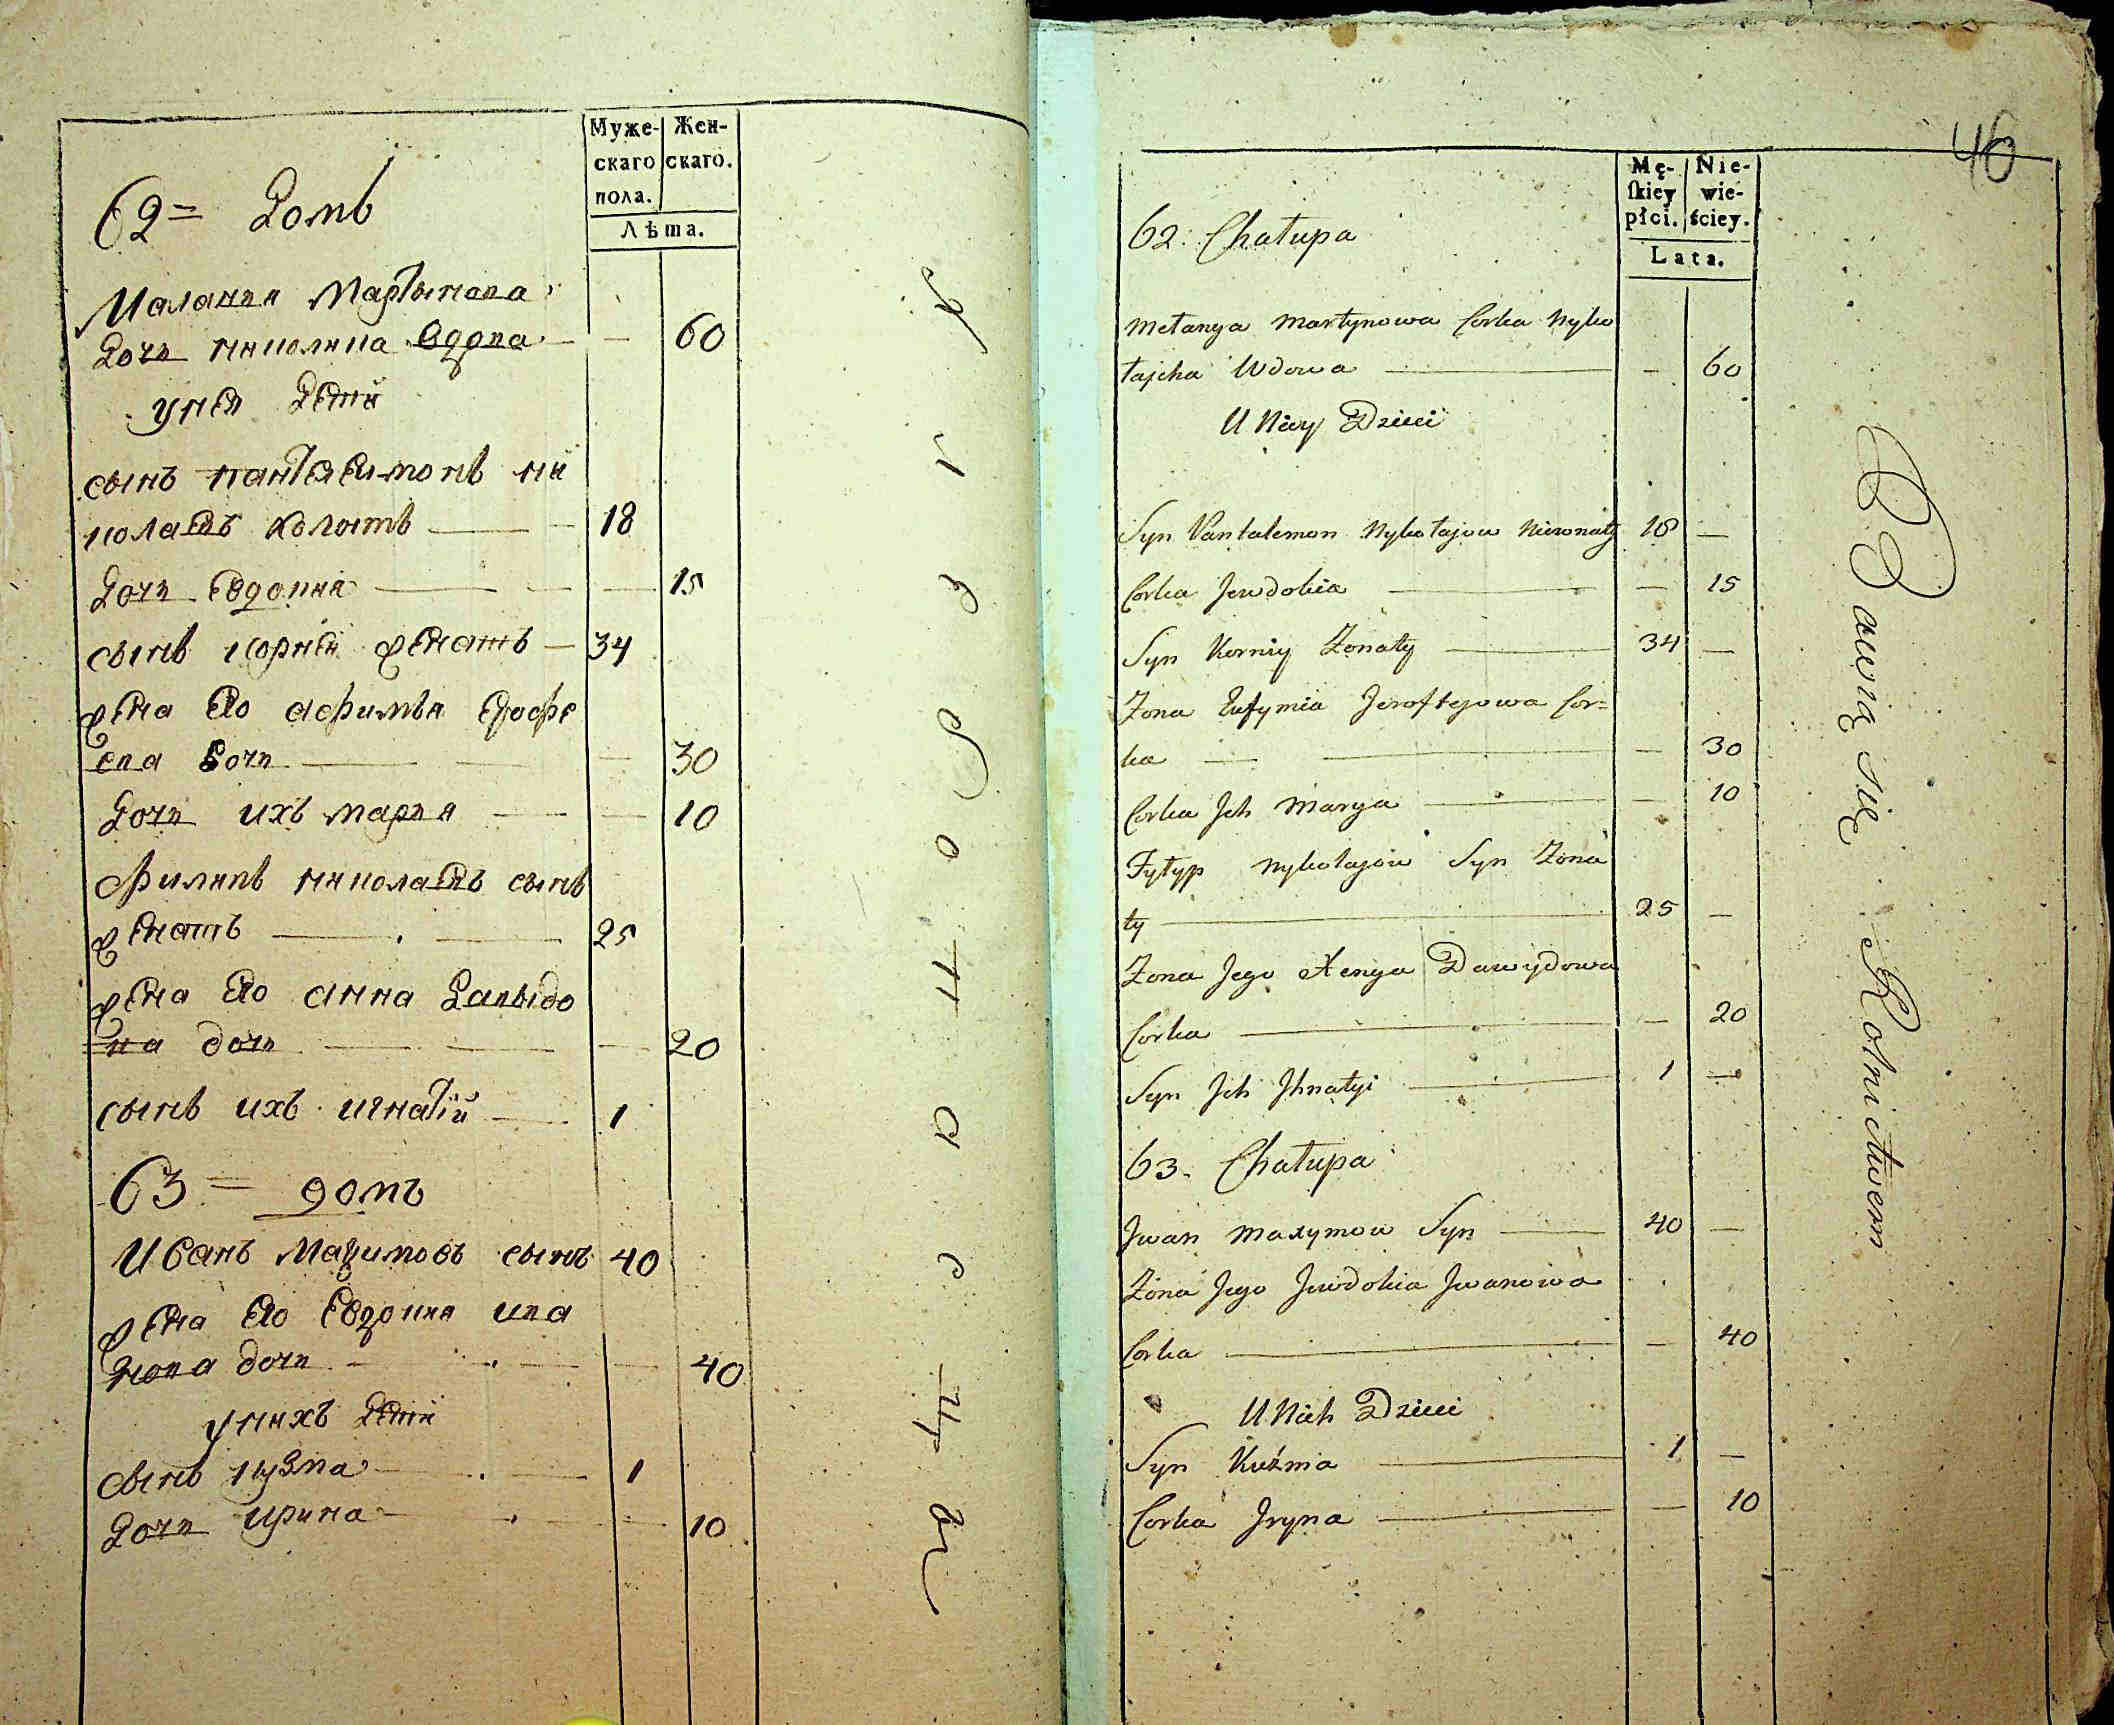 Муже-
скаго
пола.
Жен-
скаго.
Лѣта.
62 = Домъ
Малания Мартынова
Дочь николица вдова — 60
унея детей
сынъ пантелеимонъ ни
колаевъ холостъ — 18
Дочь Евдокия — 15
сынъ корней женатъ — 34
жена его афимья ерофе
ева дочь — 30
Дочь ихъ мария — 10
Филипъ николаевъ сынъ
женатъ — 25
жена его анна Давыдо
ва дочь — 20
сынъ ихъ игнатiй — 1
63 = домъ
Иванъ Маѯимовъ сынъ 40
жена его Евдокия ива
нова дочь — 40
унихъ детей
сынъ кузма — 1
Дочь ирина — 10
46
Mę-
ſkiey
płci.
Nie-
wie-
ściey.
Lata.
62. Chałupa
Mełanya Martynowa Corka Nyko
łajcha Wdowa — — 60
U Niey Dzieci
Syn Pantalemon Nykołajow Nieżonaty 18 —
Corka Jewdokia — — 15
Syn Korniy Żonaty — 34 —
Żona Eufymia Jeroftejowa Cor=
ka — — 30
Corka Jch Marya — — 10
Fyłyp Nykołajow Syn Żona
ty — 25 —
Żona Jego Xenya Dawydowa
Corka — — 20
Syn Jch Jhnatyi — 1 —
63. Chałupa
Jwan Maxymow Syn — 40 —
Żona Jego Jewdokia Jwanowa
Corka — — 40
U Nich Dzieci
Syn Kuźma — 1 —
Corka Jryna — — 10
Bawią się Rolnictwem